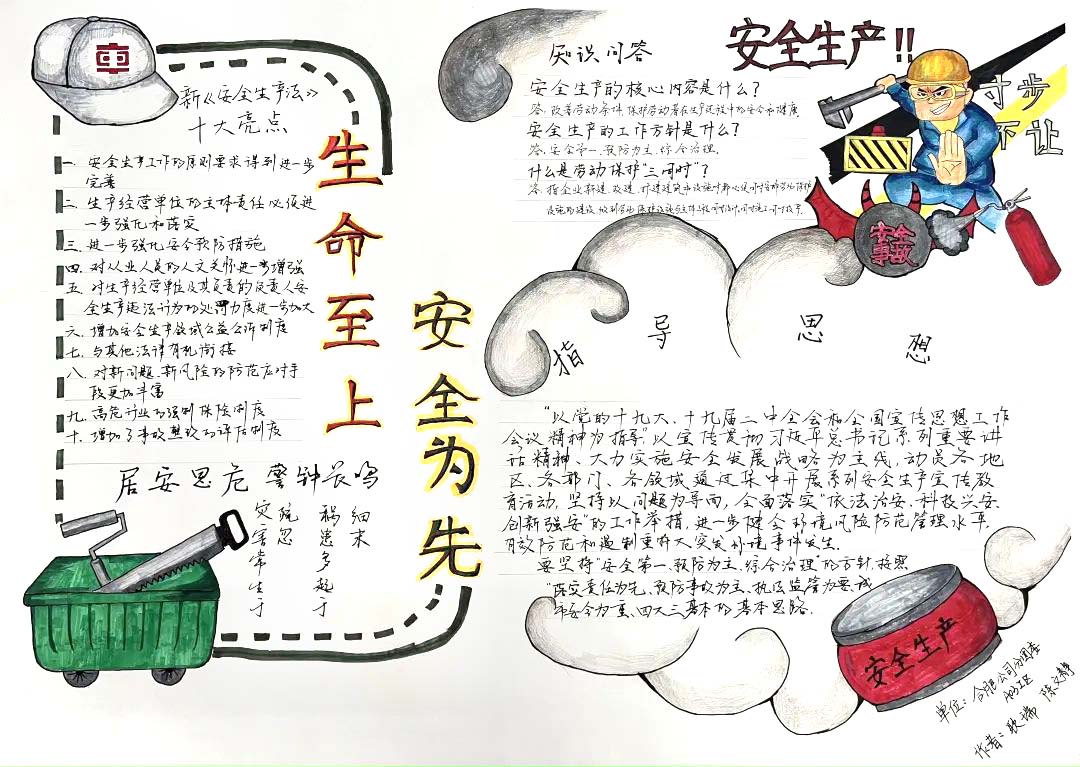 新《安全生产法》
十大亮点
一. 安全生产工作的原则要求得到进一步
完善
二. 生产经营单位的主体责任必须进
一步强化和落实
三. 进一步强化安全预防措施
四. 对从业人员的人文关怀进一步增强
五. 对生产经营单位及其负责的负责人安
全生产违法行为的处罚力度进一步加大
六. 增加安全生产领域公益公诉制度
七. 与其他法律有机衔接
八. 对新问题、新风险的防范应对手
段更加丰富
九. 高危行业的强制保险制度
十. 增加了事故整改的评估制度
居安思危 警钟长鸣
灾害常生于
疏忽
祸患多起于
细末
生命至上
安全为先
知识问答
安全生产的核心内容是什么?
答:改善劳动条件,保护劳动者在生产过程中的安全和健康
安全生产的工作方针是什么?
答:安全第一、预防为主、综合治理.
什么是劳动保护“三同时”?
安全生产!!
寸步
不让
安全
事故
指导思想
“以党的十九大、十九届二中全会和全国宣传思想工作
会议精神为指导”以宣传贯彻习近平总书记系列重要讲
话精神、大力实施安全发展战略为主线,动员各地
区、各部门、各领域通过集中开展系列安全生产宣传教
育活动,坚持以问题为导向,全面落实“依法治安、科技兴安、
创新强安”的工作举措,进一步健全环境风险防范管理水平,
有效防范和遏制重特大突发环境事件发生.
要坚持“安全第一、预防为主、综合治理”的方针,按照
“落实责任为先、预防事故为主、执法监管为要、城
市安全为重、四大三基本的基本思路.
安全生产
单位:合肥公司分固庄
作者:耿瑞 陈文静